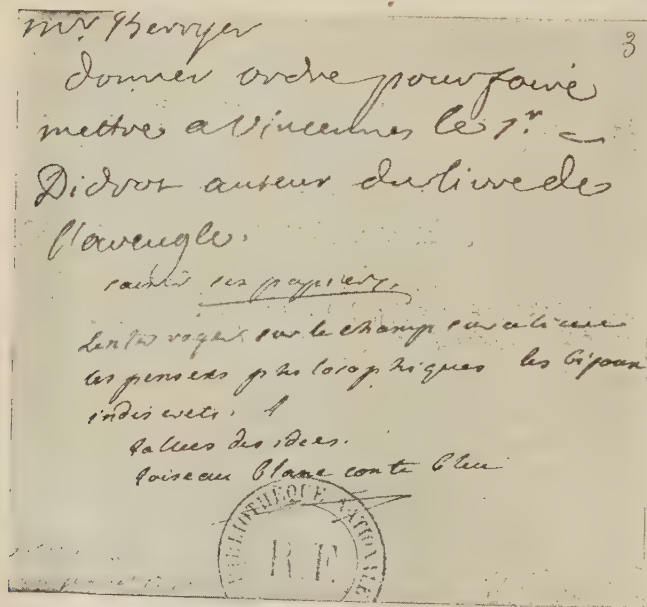 mr. Berryer
3
donner ordre pour faire
mettre a Vincennes le sr.
Didrot auteur du livre de
l'aveugle.
saisir ses papiers.
Linterroger sur le champ sur ce livre
les pensees philosophiques les bijoux
indiscrets.
lallees des idees.
loiseau blanc conte bleu
BIBLIOTHEQUE NATIONALE
R.F.